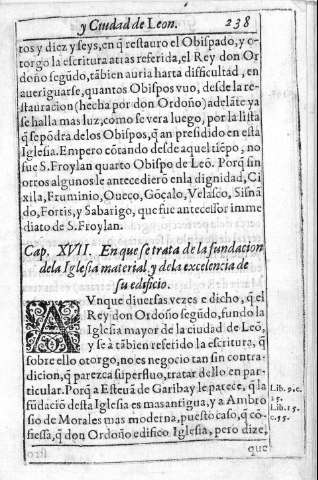 y Ciudad de Leon. 238
tos y diez y seys, en q̃ restauro el Obispado, y o-
torgo la escritura atras referida, el Rey don Or
doño segũdo, tãbien auria harta difficultad, en
aueriguarse, quantos Obispos vuo, desde la re-
stauracion (hecha por don Ordoño) adelãte ya
se halla mas luz, como se vera luego, por la lista
q̃ se põdra delos Obispos, q̃ an presidido en esta
Iglesia. Empero cõtando desde aquel tiẽpo, no
fue S. Froylan quarto Obispo de Leõ. Porq̃ sin
otros algunos le antecedierõ en la dignidad, Ci
xila, Fruminio, Oueco, Gõçalo, Velasco, Sisnã
do, Fortis, y Sabarigo, que fue antecessor imme
diato de S. Froylan.
Cap. XVII. En que se trata de la fundacion
dela Iglesia material, y dela excelencia de
su edificio.
AVnque diuersas vezes e dicho, q̃ el
Rey don Ordoño segũdo, fundo la
Iglesia mayor de la ciudad de Leõ,
y se à tãbien referido la escritura, q̃
sobre ello otorgo, no es negocio tan sin contra-
dicion, q̃ parezca superfluo, tratar dello en par-
ticular. Porq̃ a Esteuã de Garibay le parece, q̃ la
fũdaciõ desta Iglesia es mas antigua, y a Ambro
sio de Morales mas moderna, puesto caso, q̃ cõ-
fiessa, q̃ don Ordoño edifico Iglesia, pero dize,
que
Lib. 9. c.
15.
Lib. 15.
c. 35.